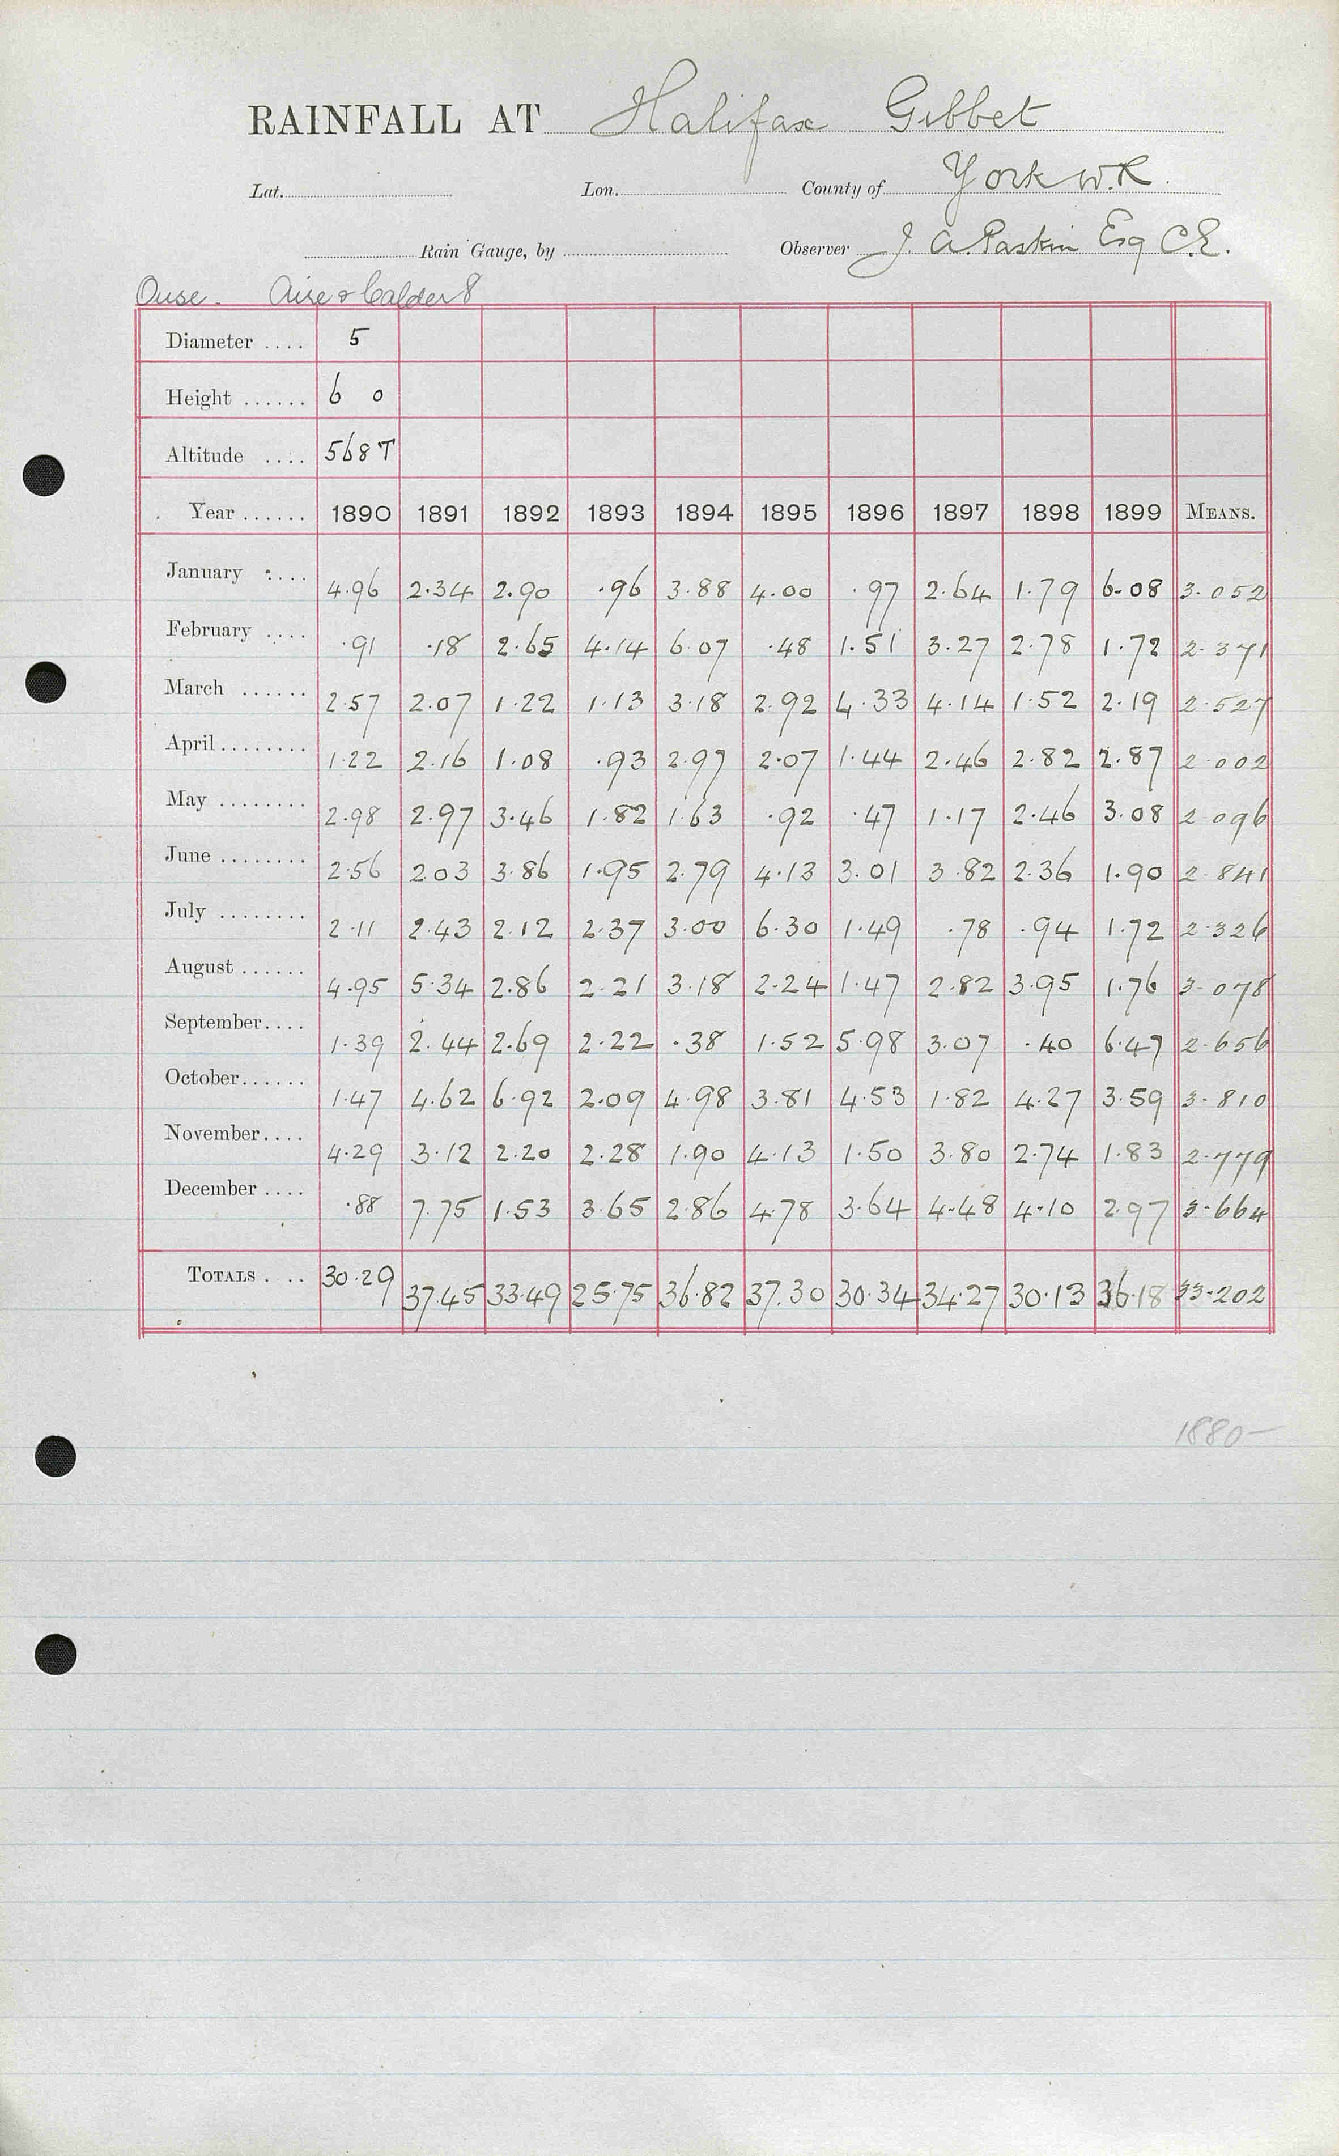 RAINFALL AT Halifax Gibbet
Lat. Lon. County of York W.R.
Rain Gauge, by Observer J. A. Paskin Esq C.E.
Ouse. Aire & Calder 8
Diameter .... 5
Height ...... 6 0
Altitude .... 568 T
Year ...... 1890 1891 1892 1893 1894 1895 1896 1897 1898 1899 MEANS.
January .... 4.96 2.34 2.90 .96 3.88 4.00 .97 2.64 1.79 6.08 3.052
February .... .91 .18 2.65 4.14 6.07 .48 1.51 3.27 2.78 1.72 2.371
March ...... 2.57 2.07 1.22 1.13 3.18 2.92 4.33 4.14 1.52 2.19 2.527
April ........ 1.22 2.16 1.08 .93 2.97 2.07 1.44 2.46 2.82 2.87 2.002
May ........ 2.98 2.97 3.46 1.82 1.63 .92 .47 1.17 2.46 3.08 2.096
June ........ 2.56 2.03 3.86 1.95 2.79 4.13 3.01 3.82 2.36 1.90 2.841
July ........ 2.11 2.43 2.12 2.37 3.00 6.30 1.49 .78 .94 1.72 2.326
August ...... 4.95 5.34 2.86 2.21 3.18 2.24 1.47 2.82 3.95 1.76 3.078
September .... 1.39 2.44 2.69 2.22 .38 1.52 5.98 3.07 .40 6.47 2.656
October ...... 1.47 4.62 6.92 2.09 4.98 3.81 4.53 1.82 4.27 3.59 3.810
November .... 4.29 3.12 2.20 2.28 1.90 4.13 1.50 3.80 2.74 1.83 2.779
December .... .88 7.75 1.53 3.65 2.86 4.78 3.64 4.48 4.10 2.97 3.664
TOTALS . .. 30.29 37.45 33.49 25.75 36.82 37.30 30.34 34.27 30.13 36.18 33.202
1880-